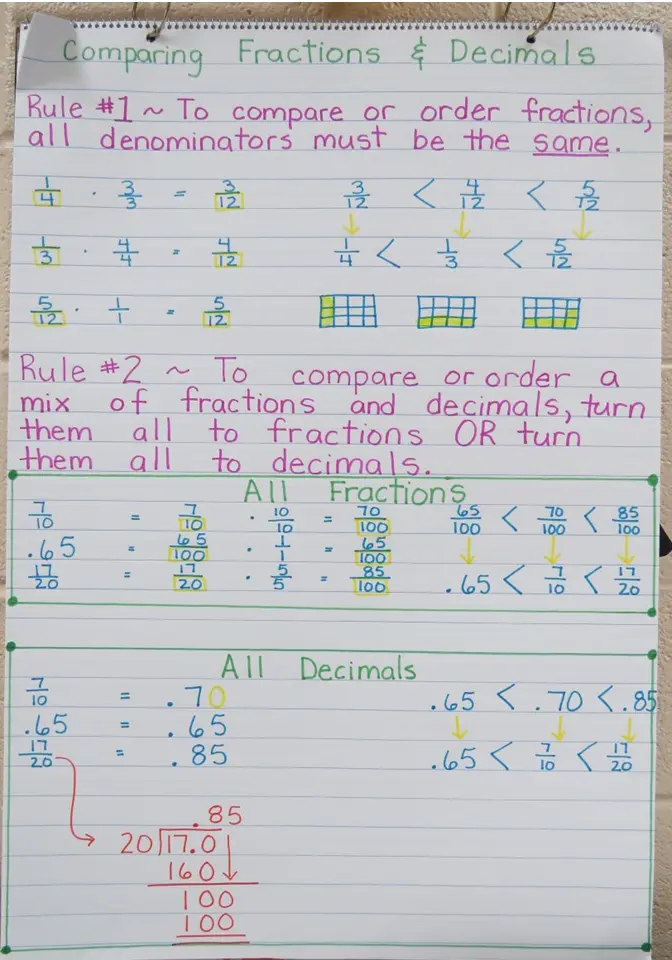 Comparing Fractions & Decimals
Rule #1 ~ To compare or order fractions,
all denominators must be the same.
1/4 · 3/3 = 3/12    3/12 < 4/12 < 5/12
1/3 · 4/4 = 4/12    1/4 < 1/3 < 5/12
5/12 · 1/1 = 5/12
Rule #2 ~ To compare or order a
mix of fractions and decimals, turn
them all to fractions OR turn
them all to decimals.
All Fractions
7/10 = 7/10 · 10/10 = 70/100    65/100 < 70/100 < 85/100
.65 = 65/100 · 1/1 = 65/100
17/20 = 17/20 · 5/5 = 85/100    .65 < 7/10 < 17/20
All Decimals
7/10 = .70    .65 < .70 < .85
.65 = .65
17/20 = .85    .65 < 7/10 < 17/20
.85
20)17.0
160
100
100